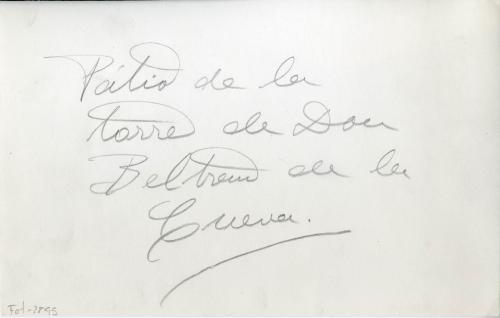 Pátio de la
torre de Don
Beltran de la
Cueva.
Fot-2895